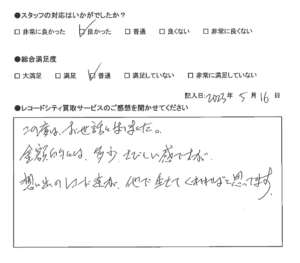 ●スタッフの対応はいかがでしたか？
□ 非常に良かった □ 良かった □ 普通 □ 良くない □ 非常に良くない
●総合満足度
□ 大満足 □ 満足 □ 普通 □ 満足していない □ 非常に満足していない
記入日: 2023 年 5 月 16 日
●レコードシティ買取サービスのご感想を聞かせてください
この度は、お世話になりました。
金額的には、多少さびしい感ですが
想い出のレコード達が、他で生きてくれればと思ってます。